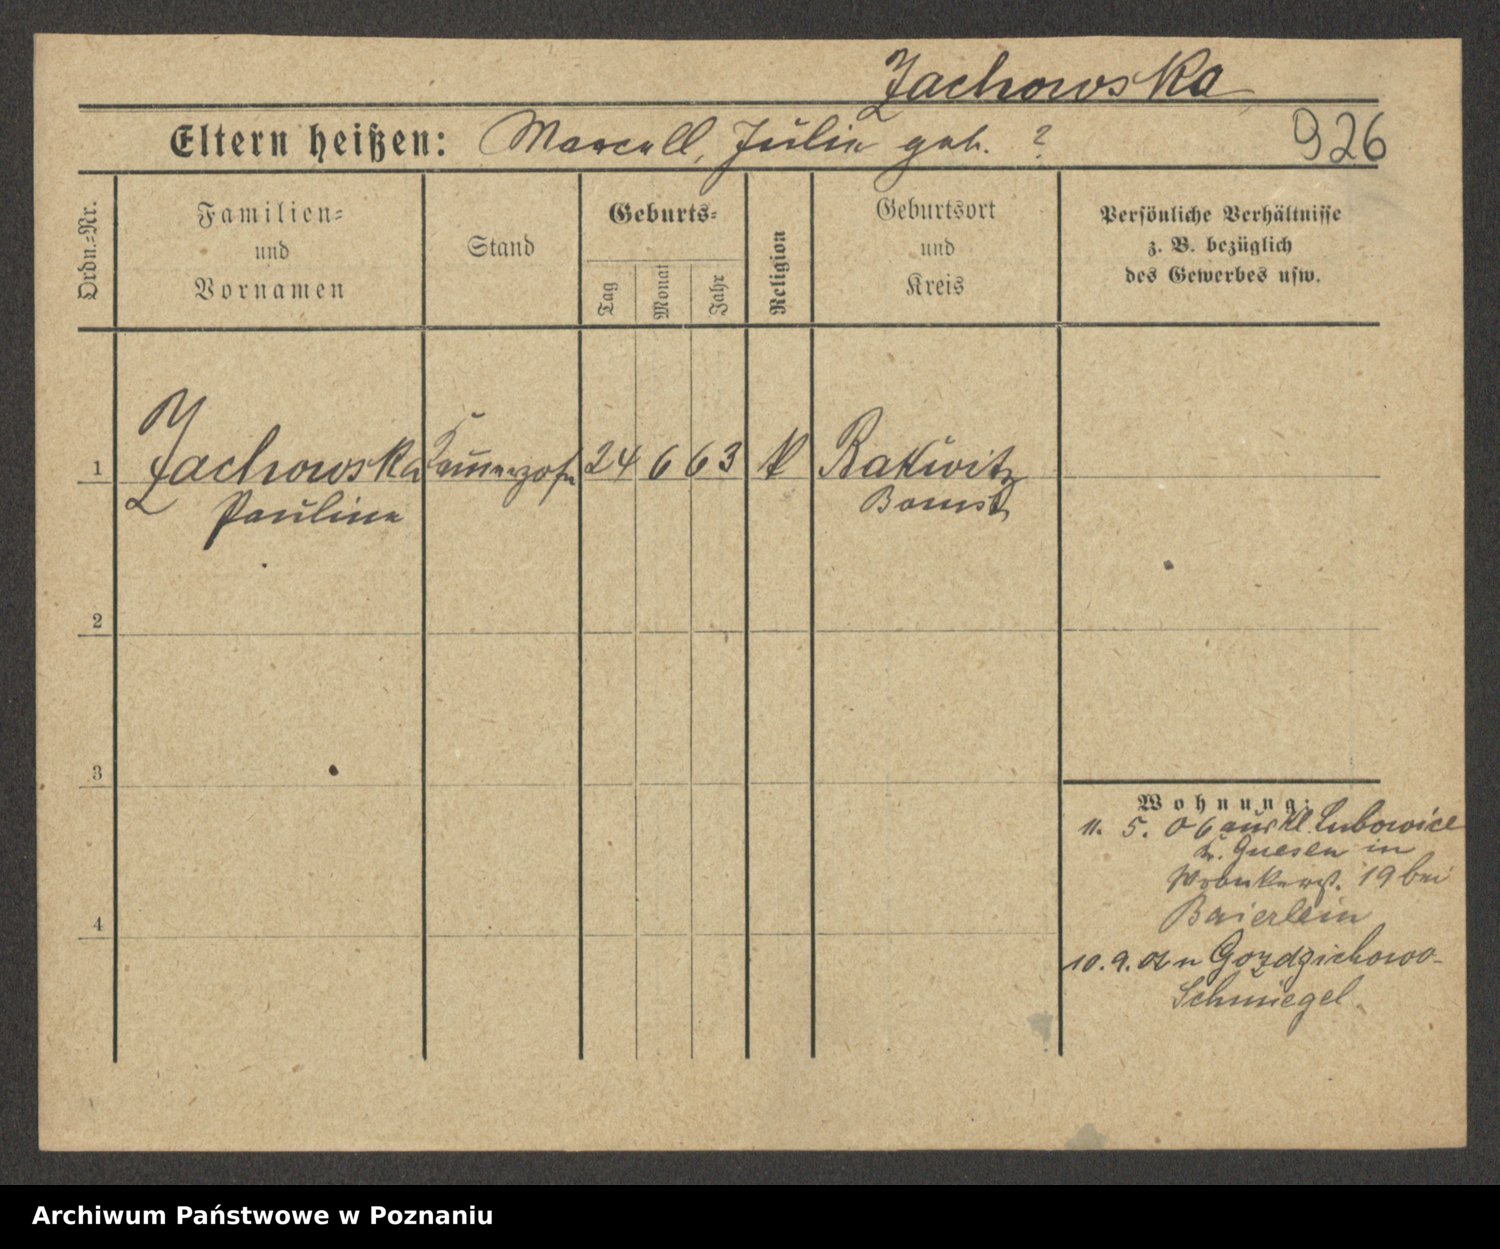 Zachowska
Eltern heißen: Marcell, Julie geb. ?
926
Ordn.=Nr.
Familien=
und
Vornamen
Stand
Geburts=
Tag
Monat
Jahr
Religion
Geburtsort
und
Kreis
Persönliche Verhältnisse
z. B. bezüglich
des Gewerbes usw.
1
Zachowska
24 6 63 k Rakwitz
Pauline
Bomst
2
3
4
Wohnung:
11. 5. 06 aus Kl. Lubowice
Kr. Gnesen in
Wronkerst. 19 bei
Baierlein
10. 9. 06 n Gozdzichowo-
Schmiegel
Archiwum Państwowe w Poznaniu